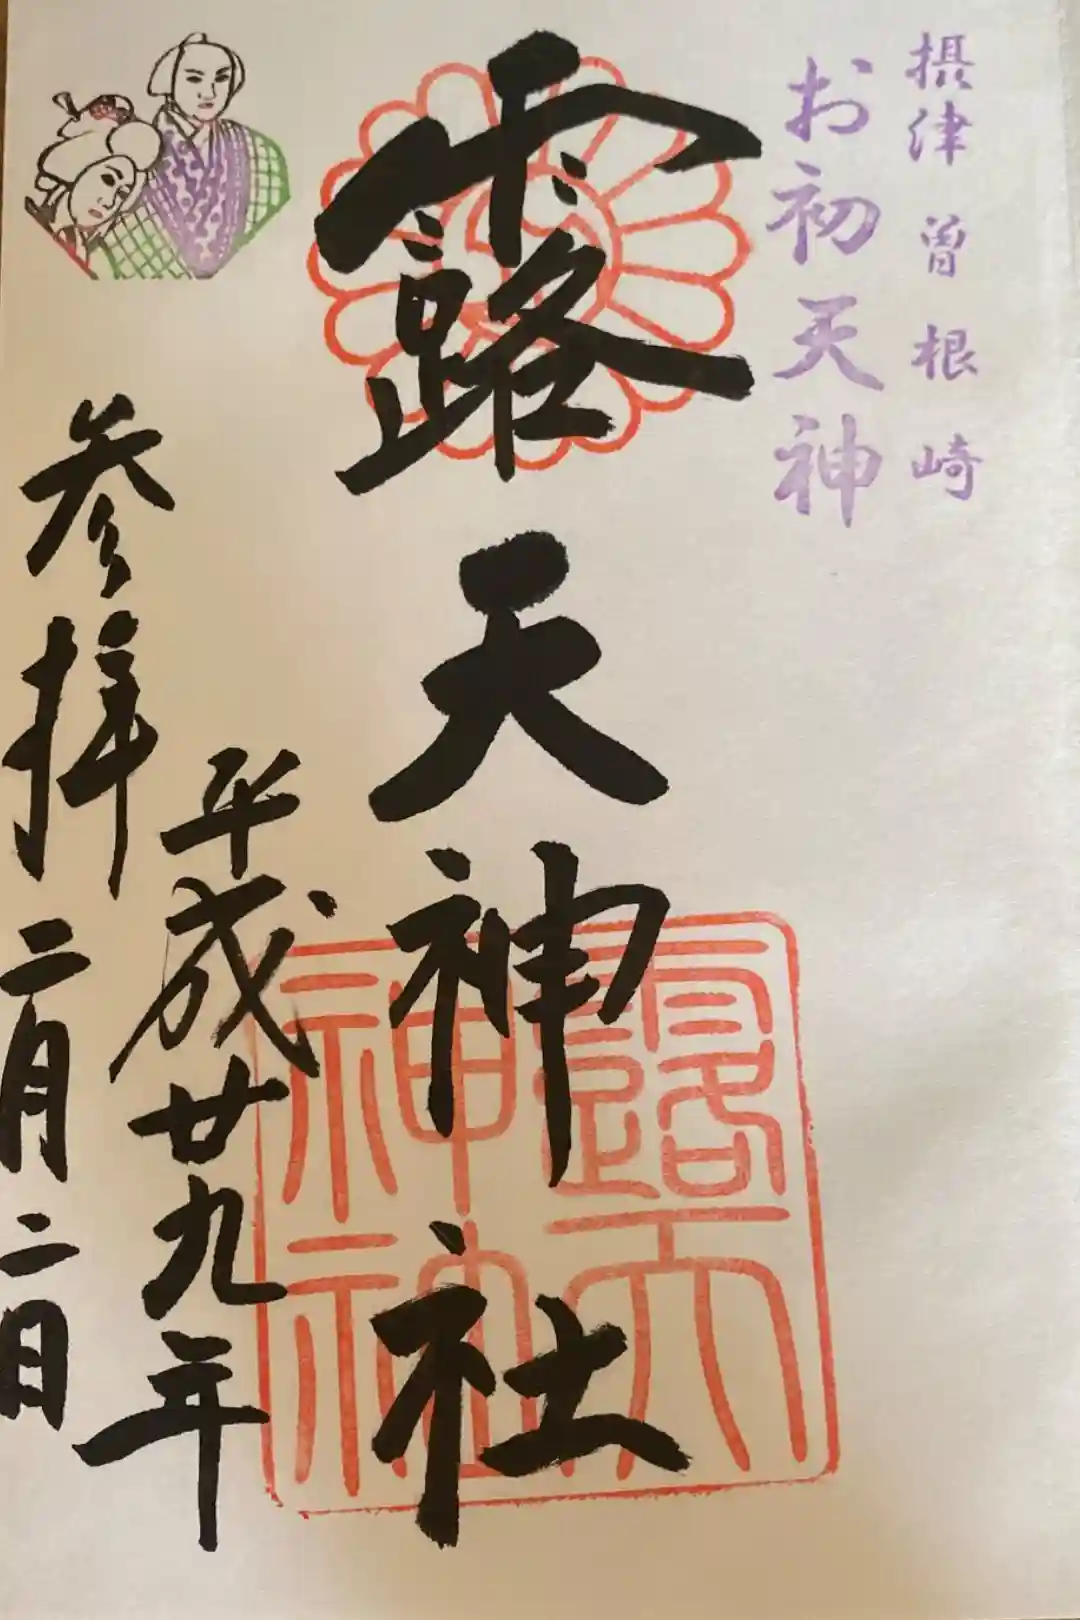 摂津曽根崎
お初天神
露天神社
平成廿九年
参拝二月二日
露天
神社